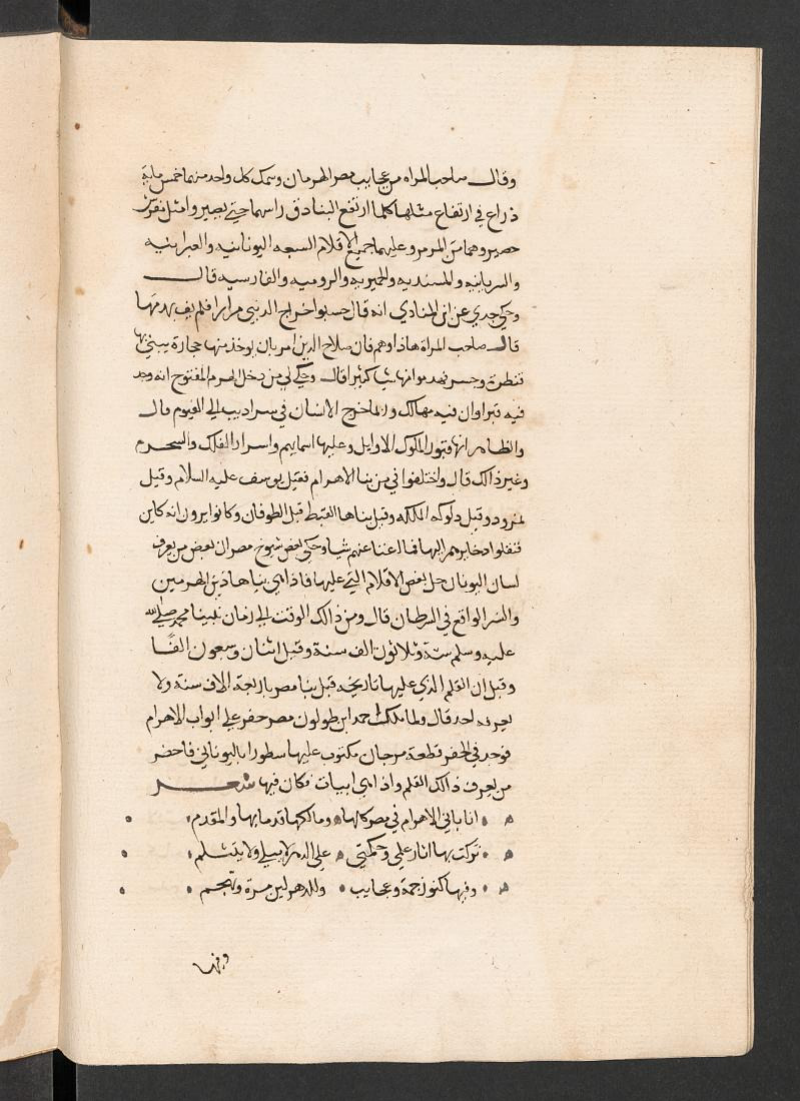 وقال صاحب المراه من عجايب مصر الهرمان وسمك كل واحد منهما خمس ماية
ذراع في ارتفاع مثلها كلما ارتفع البنا دق راسهما حتي يصير وامثل مفرش
حصير وهما من المرمر وعليهما جميع الاقلام السبعه اليونانيه والعبرانيه
والسريانيه والمسنديه والحميريه والروميه والفارسيه قال
وحكي جدي عن ابن المنادي انه قال حسبوا خراج الدنيي مرارا فلم يف بهدمها
قال صاحب المراه هاذا وهم فان صلاح الدين امر بان يوخذ منها حجارة يبني بها
قنطرة وجسر فهدموا منها شيا كثيرا قال وحكي لي من دخل الهرم المفتوح انه وجد
فيه قبرا وان فيه مهالك وربما خرج الانسان في سراديب الي الفيوم قال
والظاهر انها قبور الملوك الاوايل وعليها اسمايهم واسرار الفلك والسحر
وغير ذالك قال واختلفوا في من بنا الاهرام فقيل يوسف عليه السلام وقيل
نمرود وقيل دلوكه الملكه وقيل بناها القبط قبل الطوفان وكانوا يرون انه كاين
فنقلوا ذخايرهم اليها فما اغنا عنهم شيا وحكي بعض شيوخ مصر ان بعض من يعرف
لسان اليونان حل بعض الاقلام التي عليها فاذا هي بنا هاذين الهرمين
والنسر الواقع في السرطان قال ومن ذالك الوقت الي زمان نبينا محمد صلي الله
عليه وسلم ستة وثلاثون الف سنة وقيل اثنان وسبعون الفا
وقيل ان القلم الذي عليها تاريخه قبل بنا مصر باربعة الاف سنة ولا
يعرفه احد قال ولما ملك احمد ابن طولون مصر حفر علي ابواب الاهرام
فوجد في الحفر قطعة مرجان مكتوب عليها سطورا باليوناني فاحضر
من يعرف ذالك القلم واذا هي ابيات فكان فيها شعر
انا باني الاهرام في مصر كلها ومالكها قدما بها والمقدم
تركت بها اثار علمي وحكمتي علي الدهر لا تبلي ولا تتثلم
وفيها كنوز جمة وعجايب وللدهر لين مرة وتهجم
وفيها